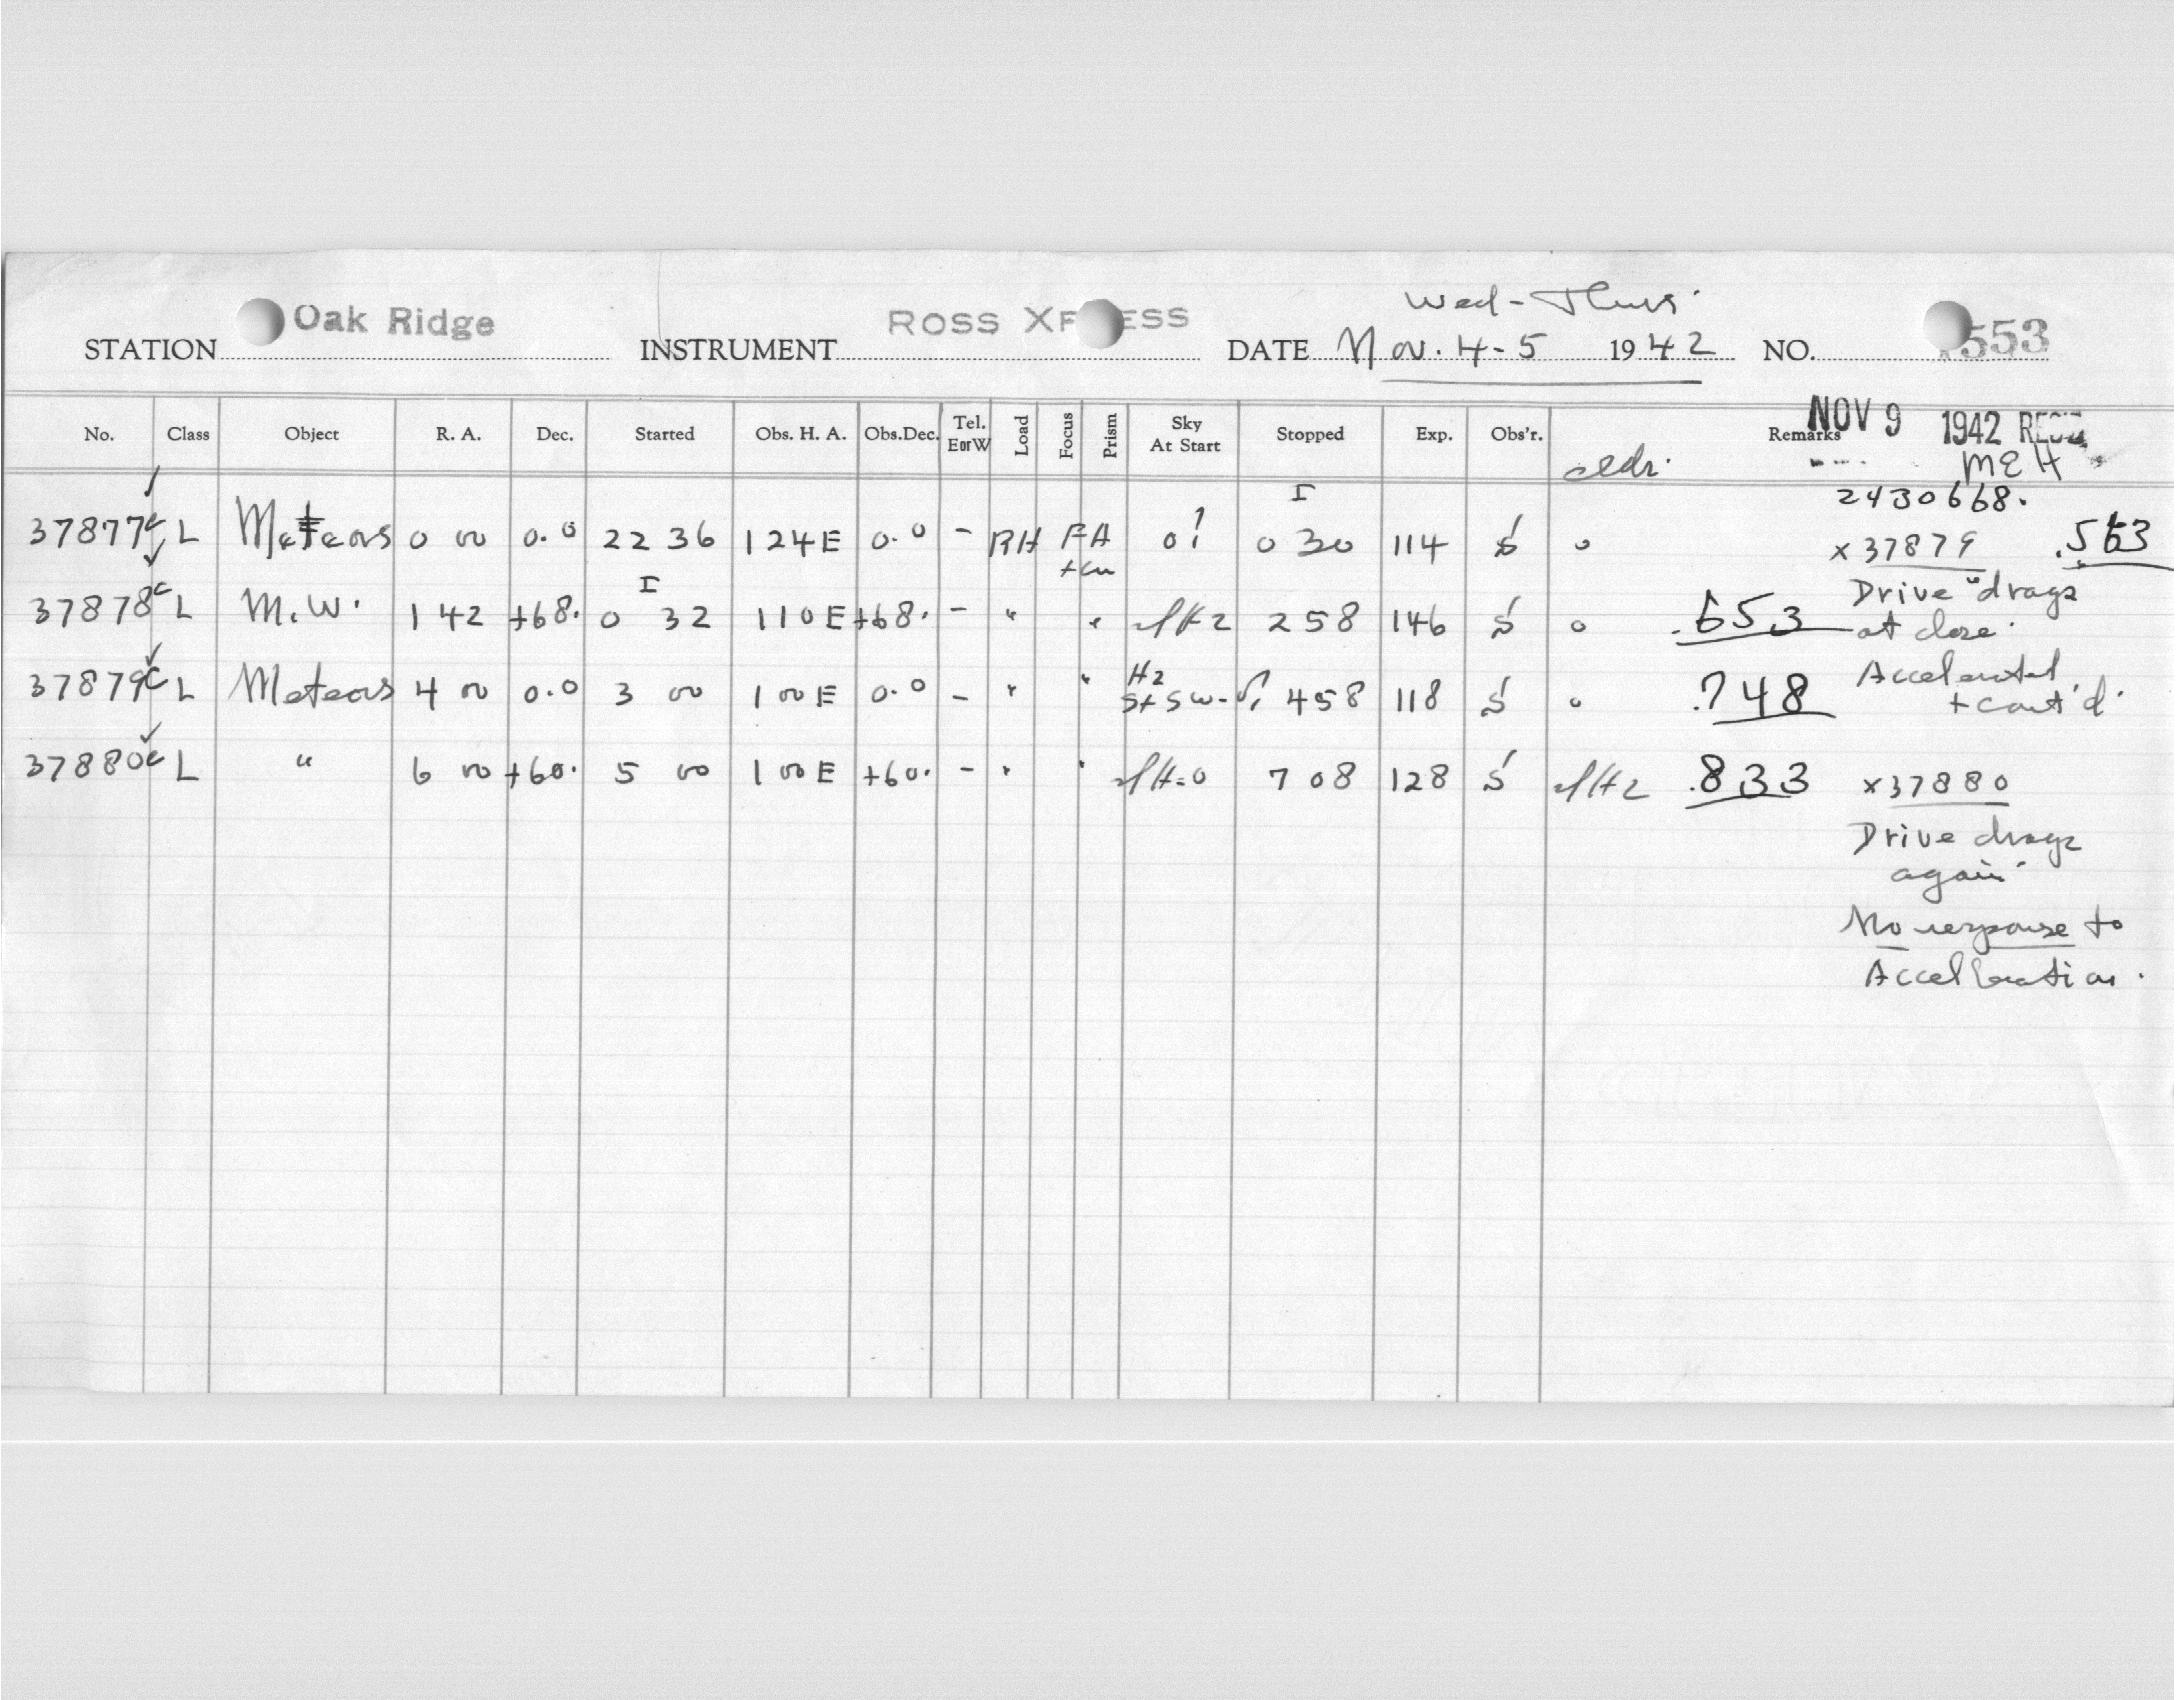 Wed - Thurs.
STATION Oak Ridge INSTRUMENT ROSS XPRESS DATE Nov. 4-5 1942 NO. 553
NOV 9 1942 REC'D
No. Class Object R. A. Dec. Started Obs. H. A. Obs.Dec. Tel. E or W Load Focus Prism Sky At Start Stopped Exp. Obs'r. Remarks
MEH
I 2430668.
37877 c L Meteors 0 00 0.0 22 36 124E 0.0 - RH FA 0! 0 30 114 S 0 x 37879 .563
I
37878 c L M.W. 1 42 +68. 0 32 110E +68. - " " H2 2 58 146 S 0 .653 Drive "drags
at close.
37879 c L Meteors 4 00 0.0 3 00 1 00E 0.0 - " " H2 St SW- 4 58 118 S 0 .748 Accelerated
+ cont'd.
37880 c L " 6 00 +60. 5 00 1 00E +60. - " " H-0 7 08 128 S H2 .833 x 37880
Drive drags
again
No response to
Accelleration.